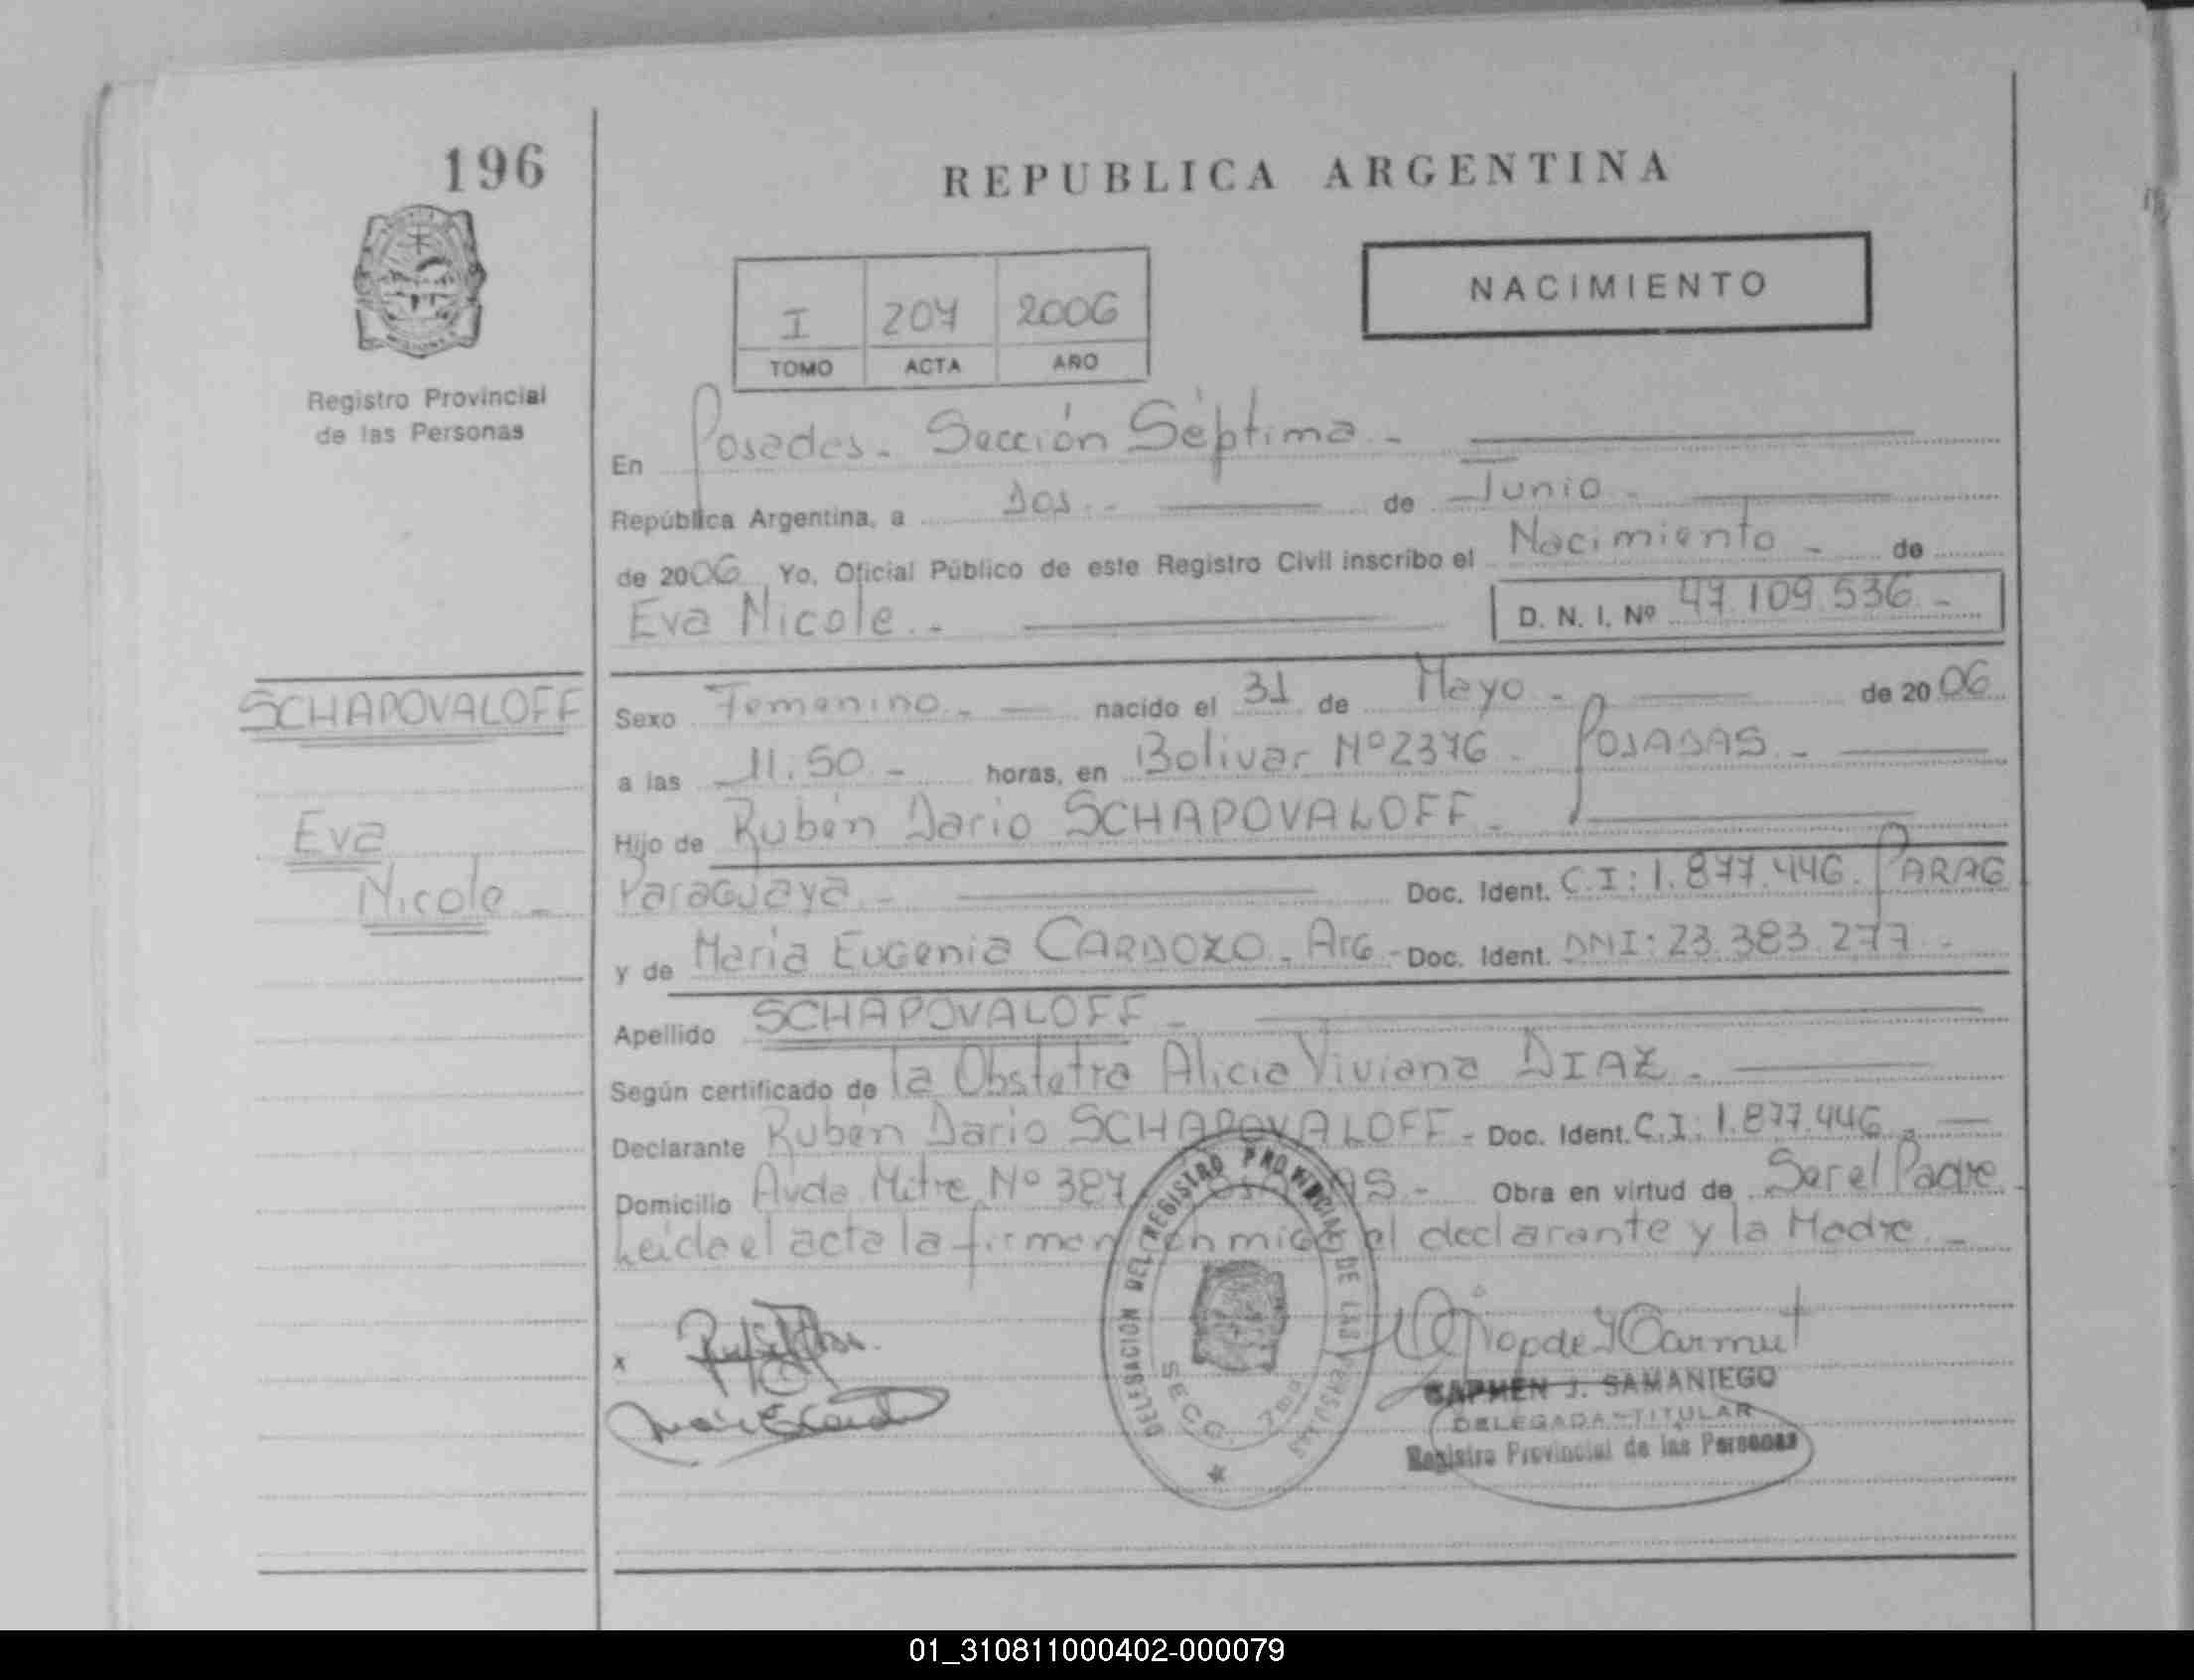 196
REPUBLICA ARGENTINA
NACIMIENTO
I 207 2006
TOMO ACTA AÑO
Registro Provincial
de las Personas
En Posadas - Sección Séptima -
República Argentina, a Dos - de Junio -
de 2006 Yo, Oficial Público de este Registro Civil inscribo el Nacimiento - de
Eva Nicole - D. N. I. Nº 47.109.536 -
SCHAPOVALOFF
Eva
Nicole -
Sexo Femenino - nacido el 31 de Mayo - de 2006
a las 11:50 - horas, en Bolivar Nº 2376 - POSADAS -
Hijo de Rubén Dario SCHAPOVALOFF -
Paraguaya - Doc. Ident. C.I: 1.877.446. PARAG
y de Maria Eugenia CARDOZO - Arg - Doc. Ident. DNI: 23.383.277 -
Apellido SCHAPOVALOFF -
Según certificado de la Obstetra Alicia Viviana DIAZ -
Declarante Rubén Dario SCHAPOVALOFF - Doc. Ident. C.I: 1.877.446 -
Domicilio Avda. Mitre Nº 387 - Obra en virtud de Ser el Padre
Leida el acta la firman el declarante y la Madre -
x
DELEGACION DEL REGISTRO PROVINCIAL DE LAS PERSONAS
SECC. 7ma
CARMEN J. SAMANIEGO
DELEGADA TITULAR
Registro Provincial de las Personas
01_310811000402-000079